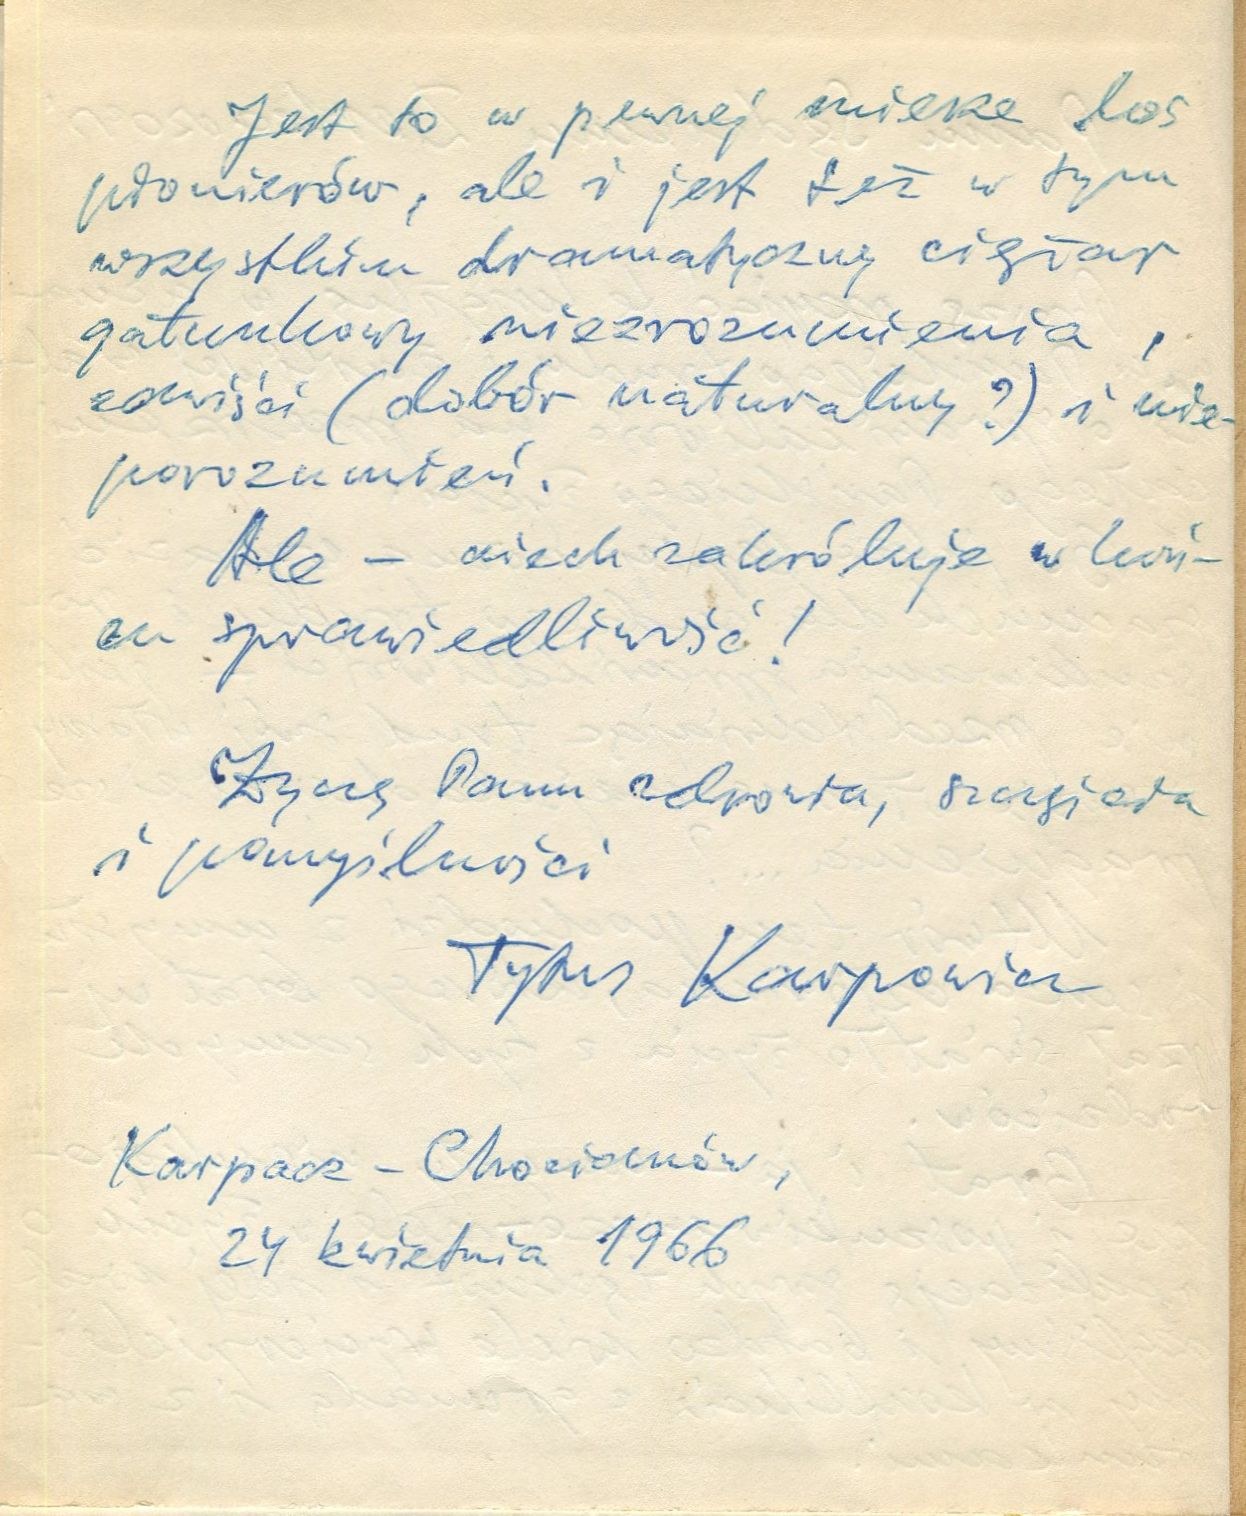 Jest to w pewnej mierze los
pionierów, ale i jest też w tym
wszystkim dramatyczny ciężar
gatunkowy niezrozumienia,
zawiści (dobór naturalny?) i nie-
porozumień.
Ale – niech zakróluje w koń-
cu sprawiedliwość!
Życzę Panu zdrowia, szczęścia
i pomyślności
Tytus Karpowicz
Karpacz – Chocianów,
24 kwietnia 1966